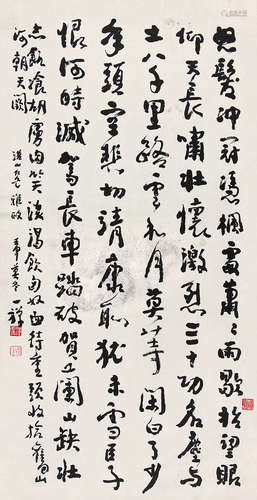 怒髮沖冠憑欄處蕭蕭雨歇抬望眼
仰天長嘯壯懷激烈三十功名塵與
土八千里路雲和月莫等閑白了少
年頭空悲切靖康恥猶未雪臣子
恨何時滅駕長車踏破賀蘭山缺壯
志飢飡胡虜肉笑談渴飲匈奴血待重頭收拾舊山
河朝天闕 雅政